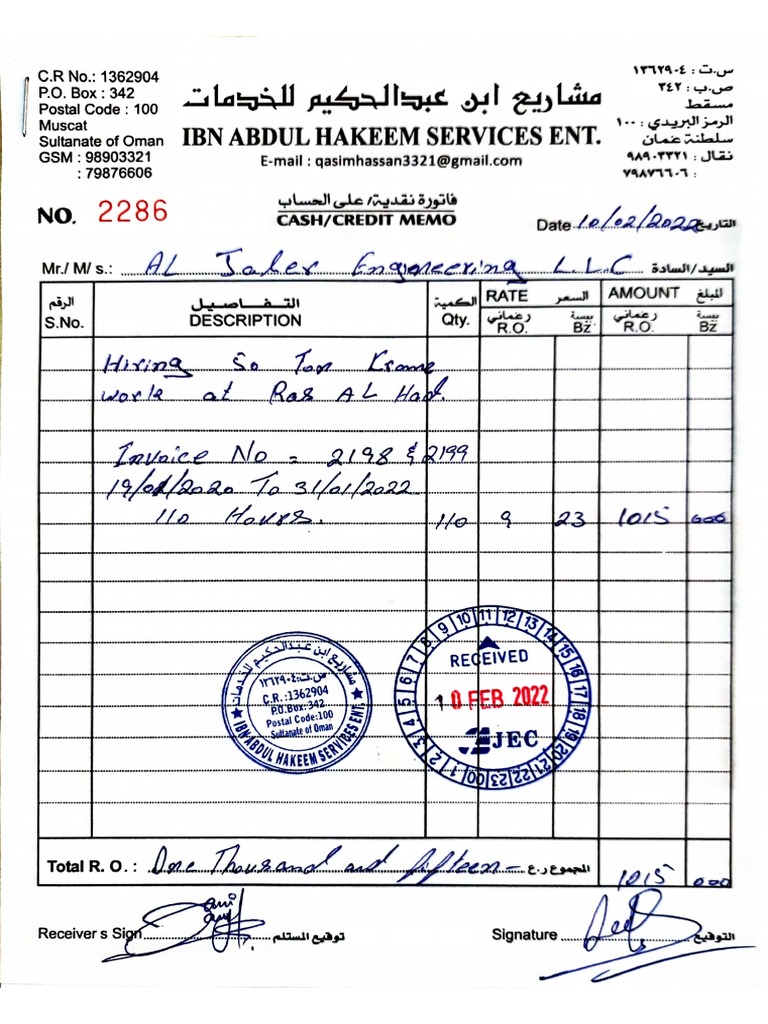 C.R No.: 1362904
P.O. Box : 342
Postal Code : 100
Muscat
Sultanate of Oman
GSM : 98903321
: 79876606
مشاريع ابن عبدالحكيم للخدمات
IBN ABDUL HAKEEM SERVICES ENT.
E-mail : qasimhassan3321@gmail.com
س.ت : ١٣٦٢٩٠٤
ص.ب : ٣٤٢
مسقط
الرمز البريدي : ١٠٠
سلطنة عمان
نقال : ٩٨٩٠٣٣٢١
: ٧٩٨٧٦٦٠٦
NO. 2286
فاتورة نقدية/ على الحساب
CASH/CREDIT MEMO
Date 10/02/2022 التاريخ
Mr./ M/ s.: AL Jaber Engineering L.L.C السيد/السادة
الرقم التـفـاصـيل الكمية RATE السعر AMOUNT المبلغ
S.No. DESCRIPTION Qty. رعماني بيسة رعماني بيسة
R.O. Bz R.O. Bz
Hiring 50 Ton Krane
work at Ras AL Had.
Invoice No = 2198 & 2199
19/01/2020 To 31/01/2022
110 Hours. 110 9 23 1015 000
مشاريع ابن عبدالحكيم للخدمات
س.ت:١٣٦٢٩٠٤
C.R.:1362904
P.O.Box: 342
Postal Code:100
Sultanate of Oman
IBN ABDUL HAKEEM SERVICES ENT.
1 2 3 4 5 6 7 8 9 10 11 12 13 14 15 16 17 18 19 20 21 22 23 00
RECEIVED
10 FEB 2022
JEC
Total R. O. : One Thousand and fifteen — المجموع ر.ع 1015 000
Receiver s Sign توقيع المستلم
Signature التوقيع